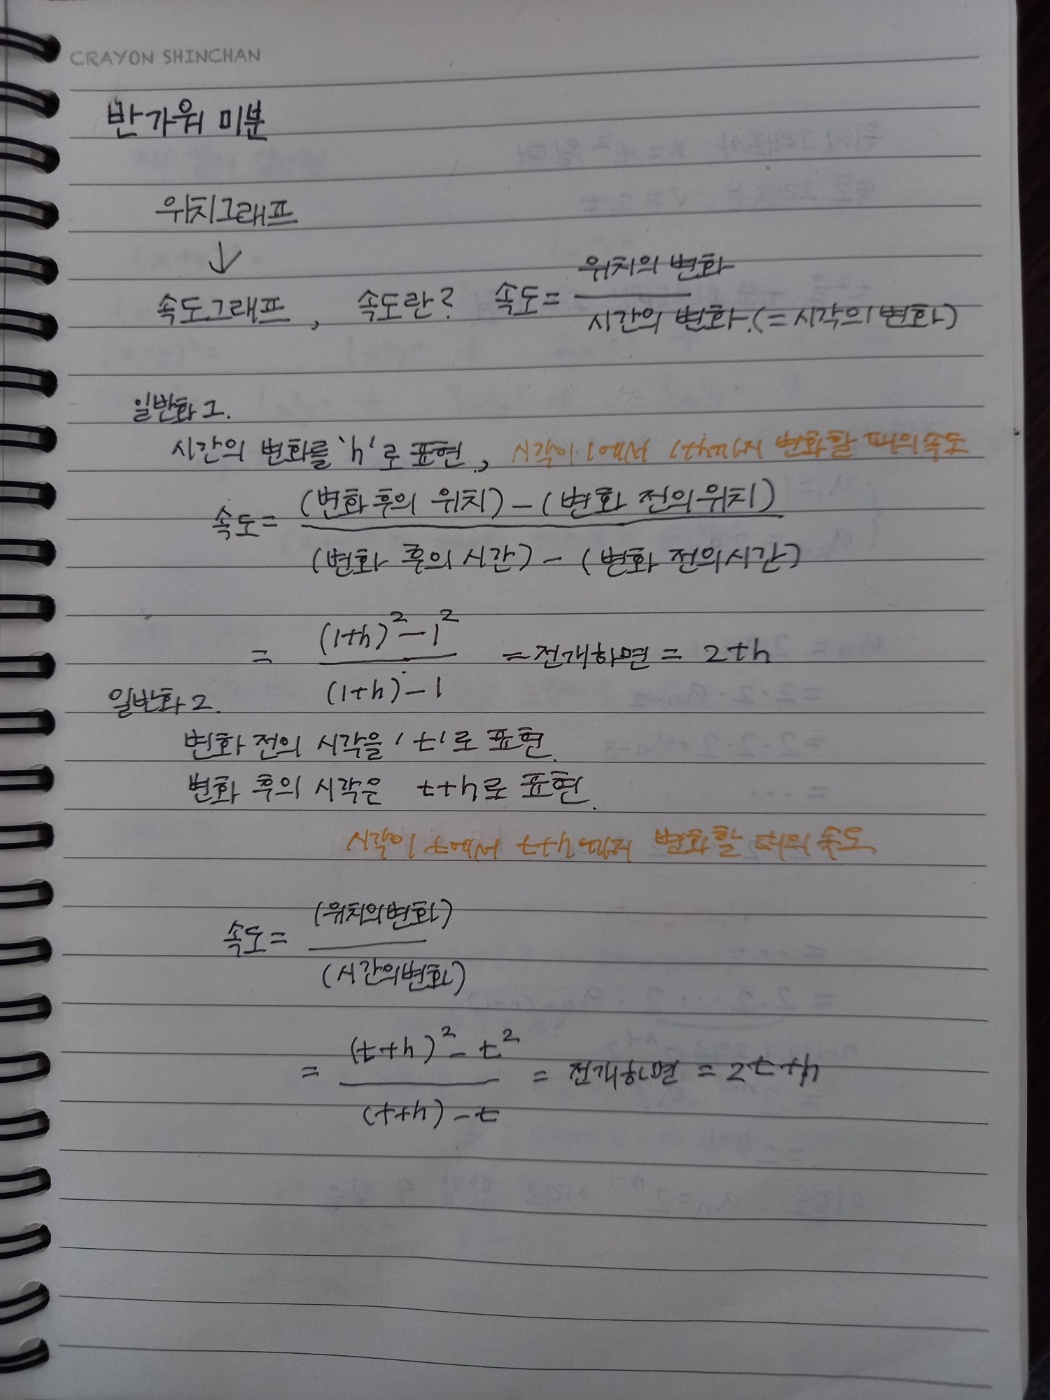 CRAYON SHINCHAN
반가워 미분
위치그래프
↓
속도그래프, 속도란? 속도 = 위치의 변화 / 시간의 변화.(=시각의 변화)
일반화 1.
시간의 변화를 'h'로 표현, 시각이 1에서 1+h까지 변화할 때의 속도
속도 = (변화 후의 위치) - (변화 전의 위치) / (변화 후의 시간) - (변화 전의 시간)
= (1+h)² - 1² / (1+h) - 1 = 전개하면 = 2+h
일반화 2.
변화 전의 시각을 't'로 표현.
변화 후의 시각은 t+h로 표현.
시각이 t에서 t+h까지 변화할 때의 속도
속도 = (위치의 변화) / (시간의 변화)
= (t+h)² - t² / (t+h) - t = 전개하면 = 2t+h